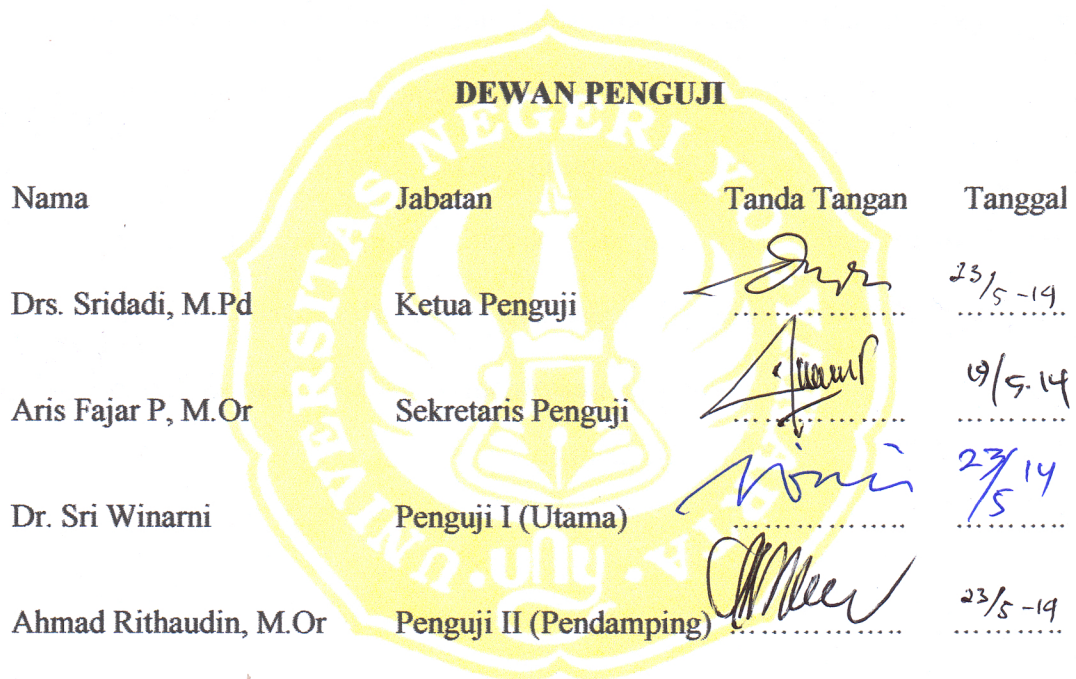 DEWAN PENGUJI
Nama Jabatan Tanda Tangan Tanggal
Drs. Sridadi, M.Pd Ketua Penguji .................. 23/5-14
Aris Fajar P, M.Or Sekretaris Penguji .................. 19/5-14
Dr. Sri Winarni Penguji I (Utama) .................. 23/5 14
Ahmad Rithaudin, M.Or Penguji II (Pendamping) .................. 23/5-14
UNIVERSITAS NEGERI YOGYAKARTA
uny